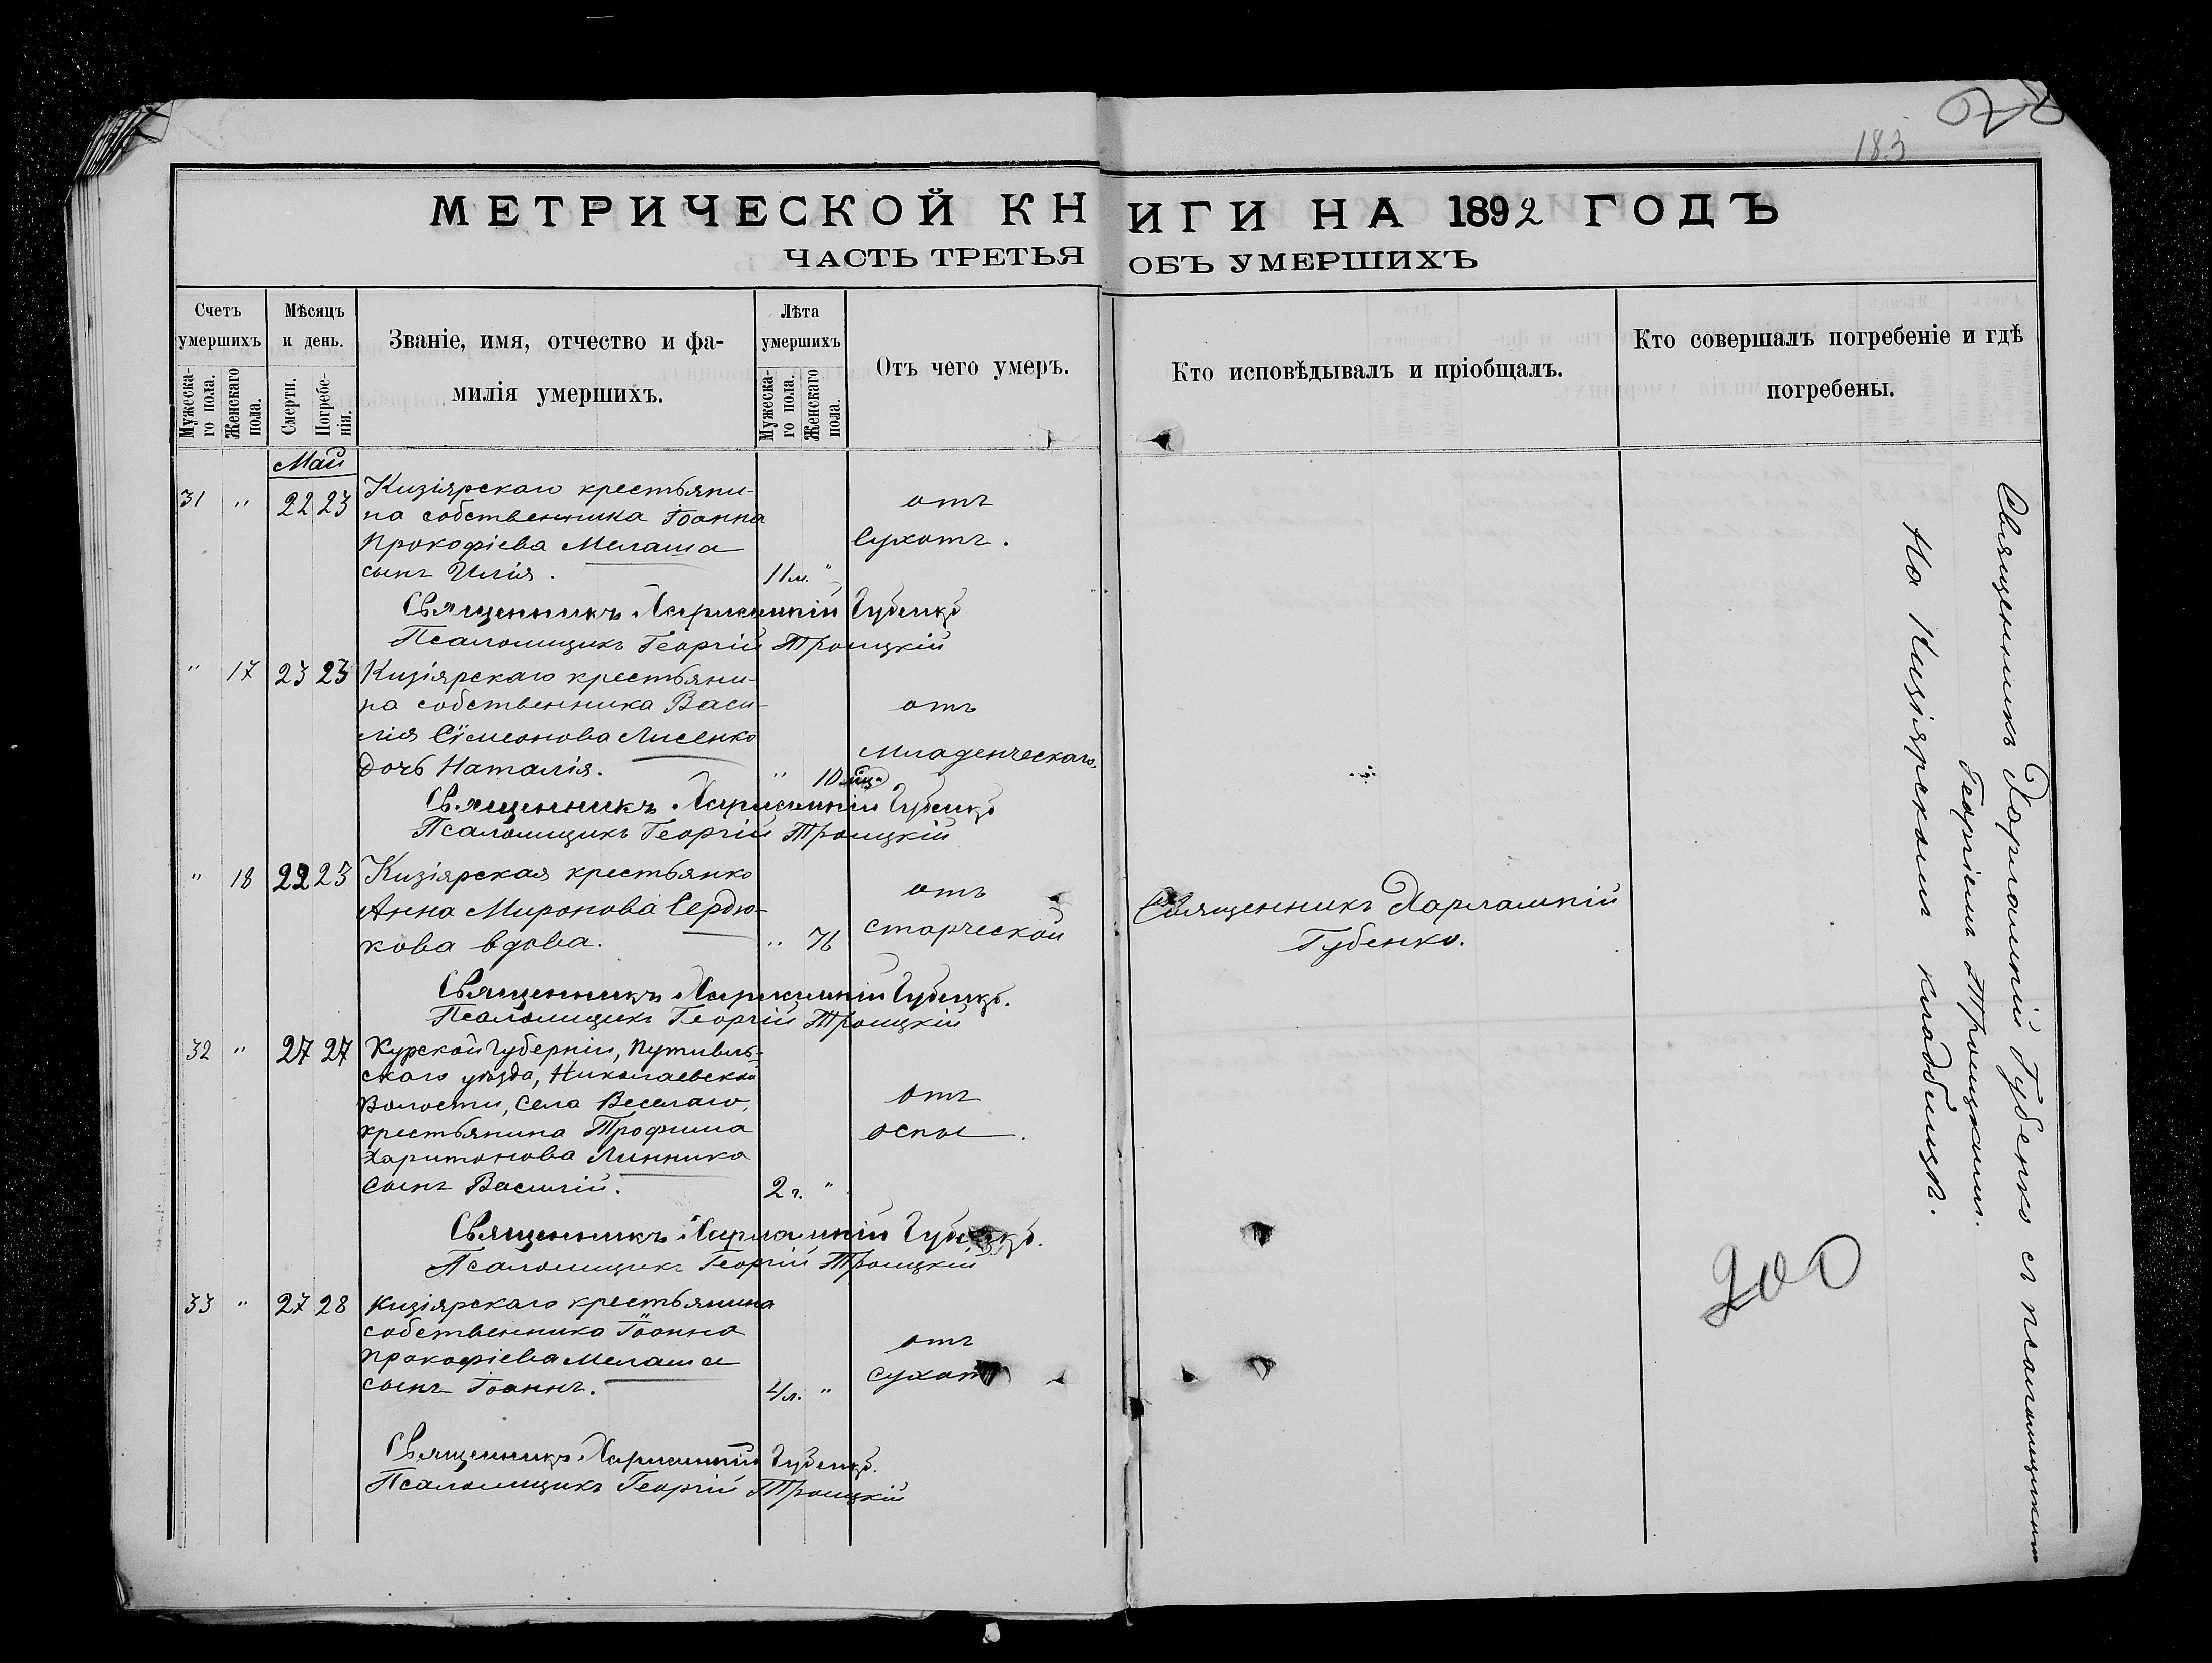 183
МЕТРИЧЕСКОЙ КНИГИ НА 1892 ГОДЪ
ЧАСТЬ ТРЕТЬЯ ОБЪ УМЕРШИХЪ
Счетъ умершихъ
Мужескаго пола.
Женскаго пола.
Мѣсяцъ и день.
Смерти.
Погребенія.
Званіе, имя, отчество и фа-
милія умершихъ.
Лѣта умершихъ
Мужескаго пола.
Женскаго пола.
Отъ чего умеръ.
Кто исповѣдывалъ и пріобщалъ.
Кто совершалъ погребеніе и гдѣ
погребены.
Май
31 " 22 23 Кизіярскаго крестьяни-
на собственника Іоанна отъ
Прокофіева Мелаша Сухотъ.
сынъ Илія. 11 м. "
Священникъ Харлампій Губенко
Псаломщикъ Георгій Троицкій
" 17 23 23 Кизіярскаго крестьяни-
на собственника Васи- отъ
лія Сѵмеонова Лисенко
дочь Наталія. " 10 мца Младенческаго.
Священникъ Харлампій Губенко
Псаломщикъ Георгій Троицкій
" 18 22 23 Кизіярская крестьянка
Анна Миронова Сердю- отъ
кова вдова. " 76 старческой
Священникъ Харлампій
Губенко.
Священникъ Харлампій Губенко.
Псаломщикъ Георгій Троицкій
32 " 27 27 Курской Губерніи, Путивль-
скаго уѣзда, Николаевской
Волости, Села Веселаго, отъ
крестьянина Трофима оспы.
Харитонова Линника
сынъ Василій. 2 г. "
Священникъ Харлампій Губенко.
Псаломщикъ Георгій Троицкій
33 " 27 28 Кизіярскаго крестьянина
собственника Іоанна отъ
Прокофіева Мелаша сухотъ
сынъ Іоаннъ. 4 л. "
Священникъ Харлампій Губенко.
Псаломщикъ Георгій Троицкій
Священникъ Харлампій Губенко съ псаломщикомъ
Георгіемъ Троицкимъ.
На Кизіярскомъ кладбищѣ.
200